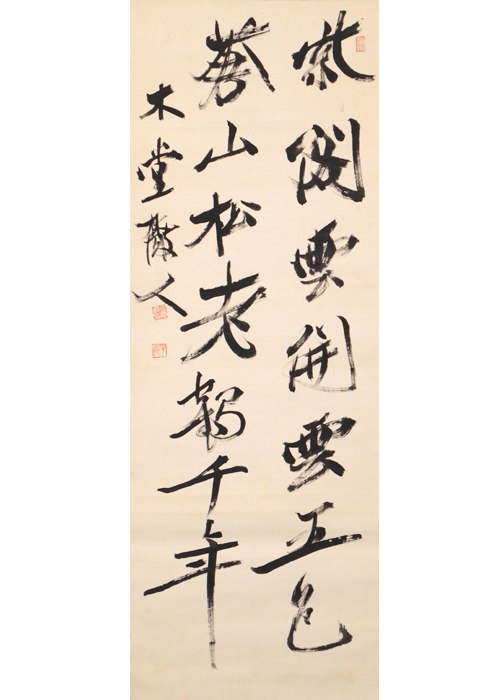 紫閣雲開雲五色
山松老鶴千年
木堂散人